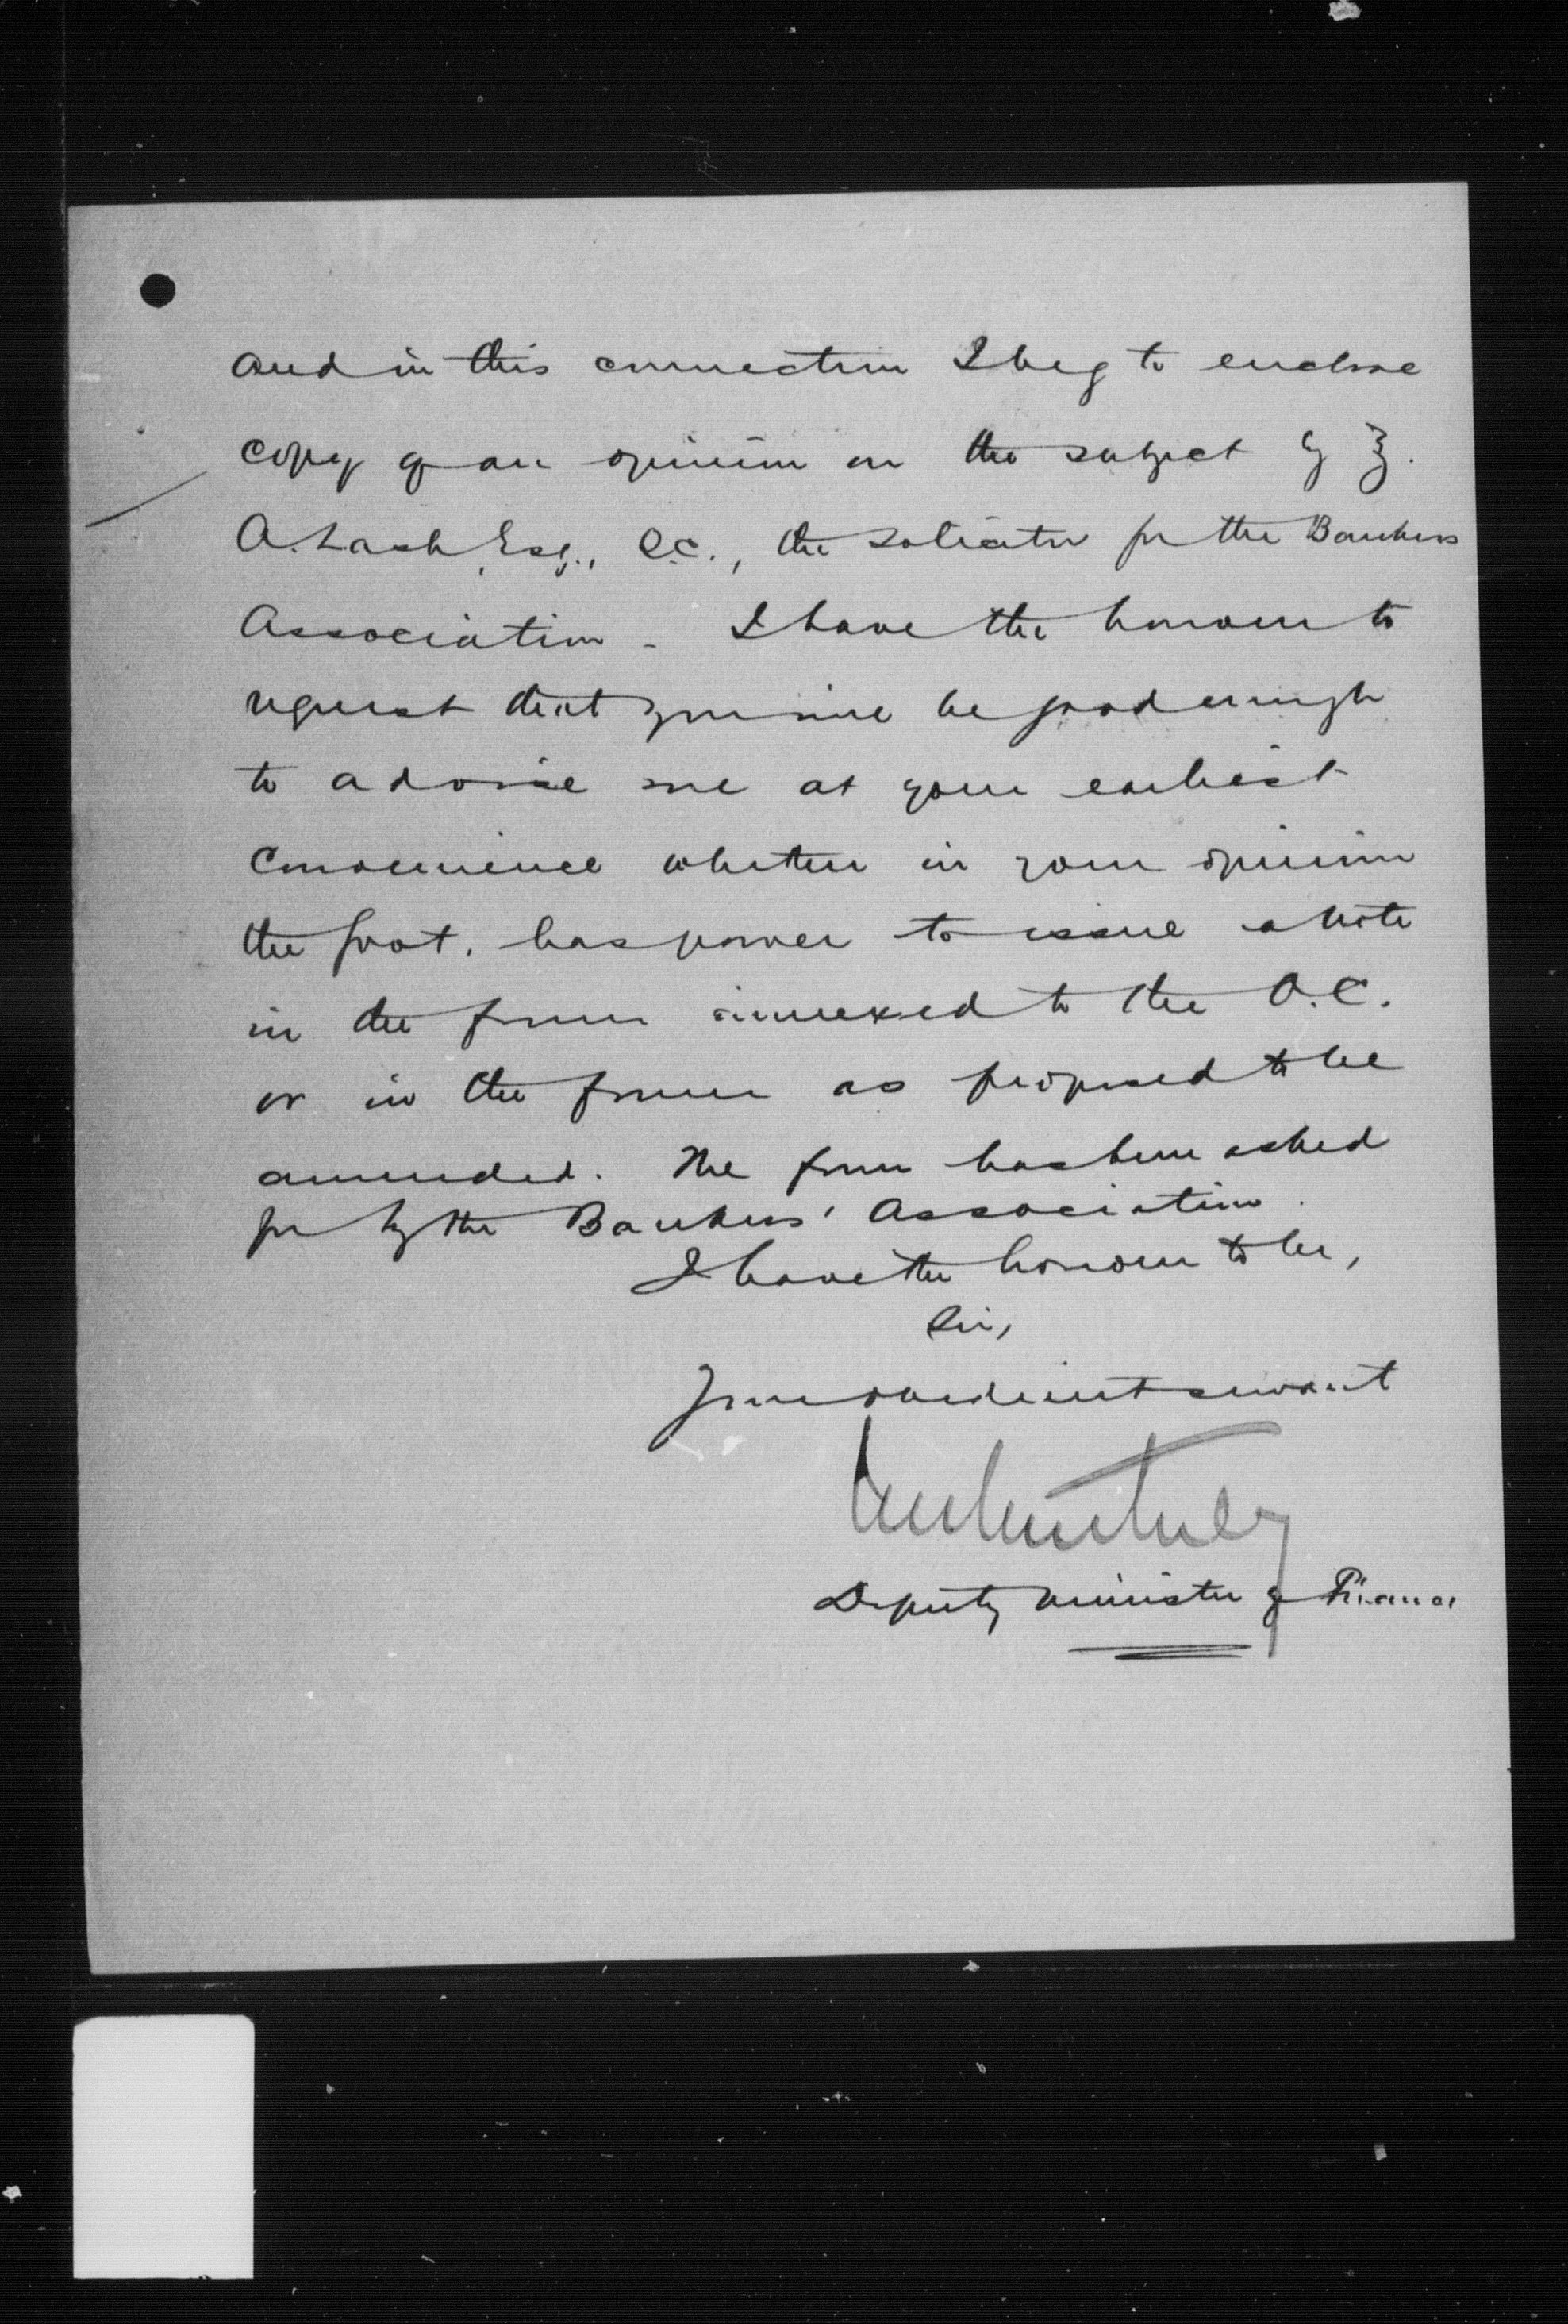 and in this connection I beg to enclose
copy of an opinion on the subject by Z.
A. Lash, Esq., Q.C., the solicitor for the Bankers
Association. I have the honour to
request that you will be good enough
to advise me at your earliest
convenience whether in your opinion
the Govt. has power to issue a note
in the form annexed to the O.C.
or in the form as proposed to be
amended. The form has been asked
for by the Bankers' Association.
I have the honour to be,
Sir,
Your obedient servant
Deputy Minister of Finance